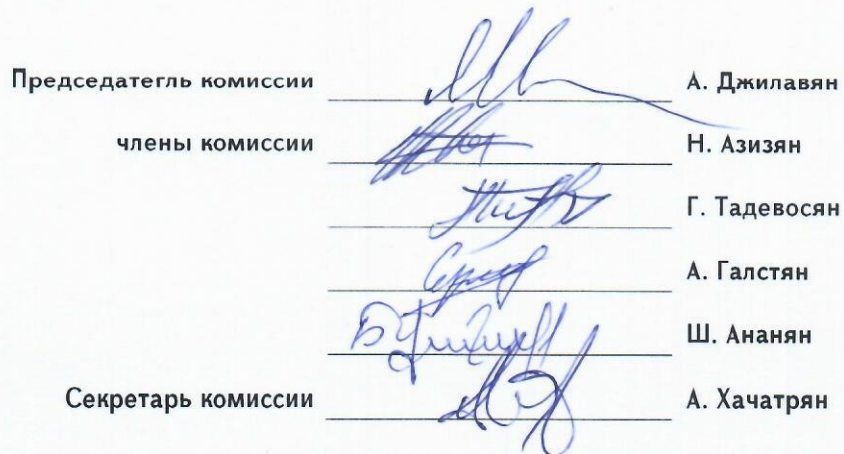 Председатегль комиссии А. Джилавян
члены комиссии Н. Азизян
Г. Тадевосян
А. Галстян
Ш. Ананян
Секретарь комиссии А. Хачатрян